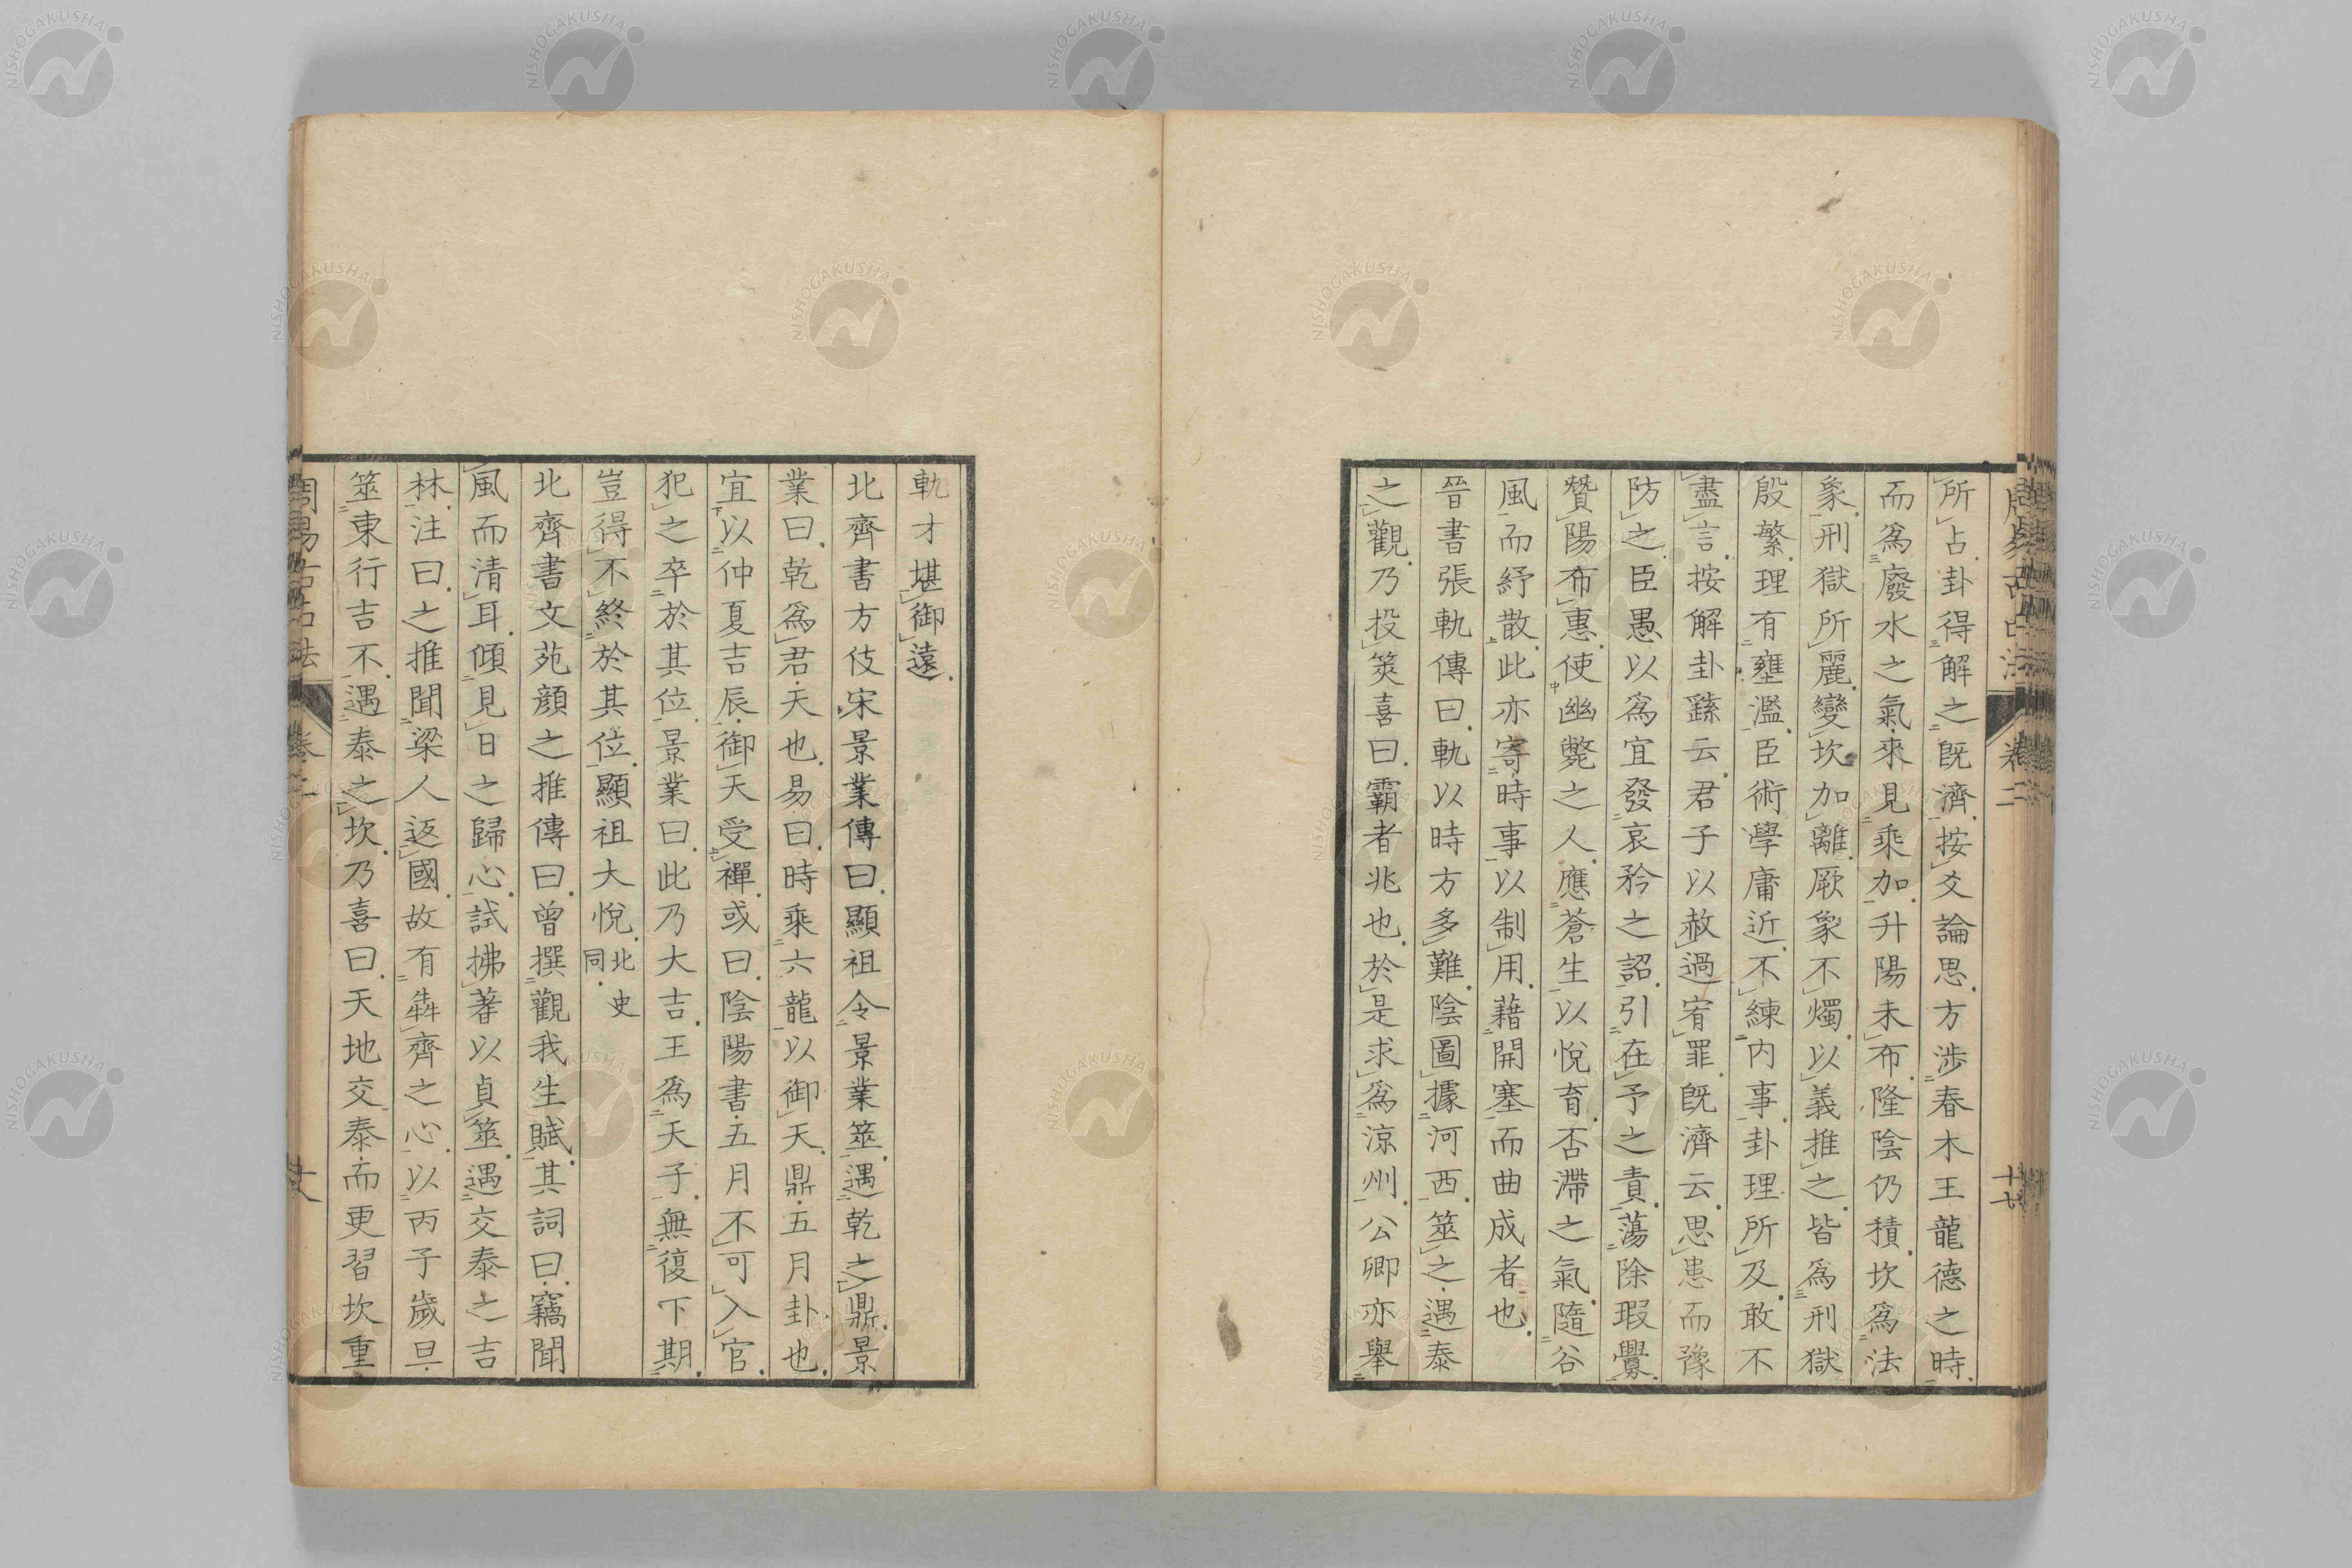 所占卦得解之既濟按爻論思方涉春木王龍德之時
而爲廢水之氣來見乘加升陽未布隆陰仍積坎爲法
象刑獄所麗變坎加離厥象不燭以義推之皆爲刑獄
殷繁理有壅濫臣術學庸近不練内事卦理所及敢不
盡言按解卦繇云君子以赦過宥罪既濟云思患而豫
防之臣愚以爲宜發哀矜之詔引在予之責蕩除瑕釁
贊陽布惠使幽斃之人應蒼生以悅育否滯之氣隨谷
風而紓散此亦寄時事以制用藉開塞而曲成者也
晉書張軌傳曰軌以時方多難陰圖據河西筮之遇泰
之觀乃投筴喜曰霸者兆也於是求爲涼州公卿亦舉
周易古占法 卷二 十七
軌才堪御遠
北齊書方伎宋景業傳曰顯祖令景業筮遇乾之鼎景
業曰乾爲君天也易曰時乘六龍以御天鼎五月卦也
宜以仲夏吉辰御天受禪或曰陰陽書五月不可入官
犯之卒於其位景業曰此乃大吉王爲天子無復下期
豈得不終於其位顯祖大悅北史同
北齊書文苑顔之推傳曰曾撰觀我生賦其詞曰竊聞
風而清耳傾見日之歸心試拂蓍以貞筮遇交泰之吉
林注曰之推聞梁人返國故有犇齊之心以丙子歲旦
筮東行吉不遇泰之坎乃喜曰天地交泰而更習坎重
周易古占法 卷二
NISHOGAKUSHA